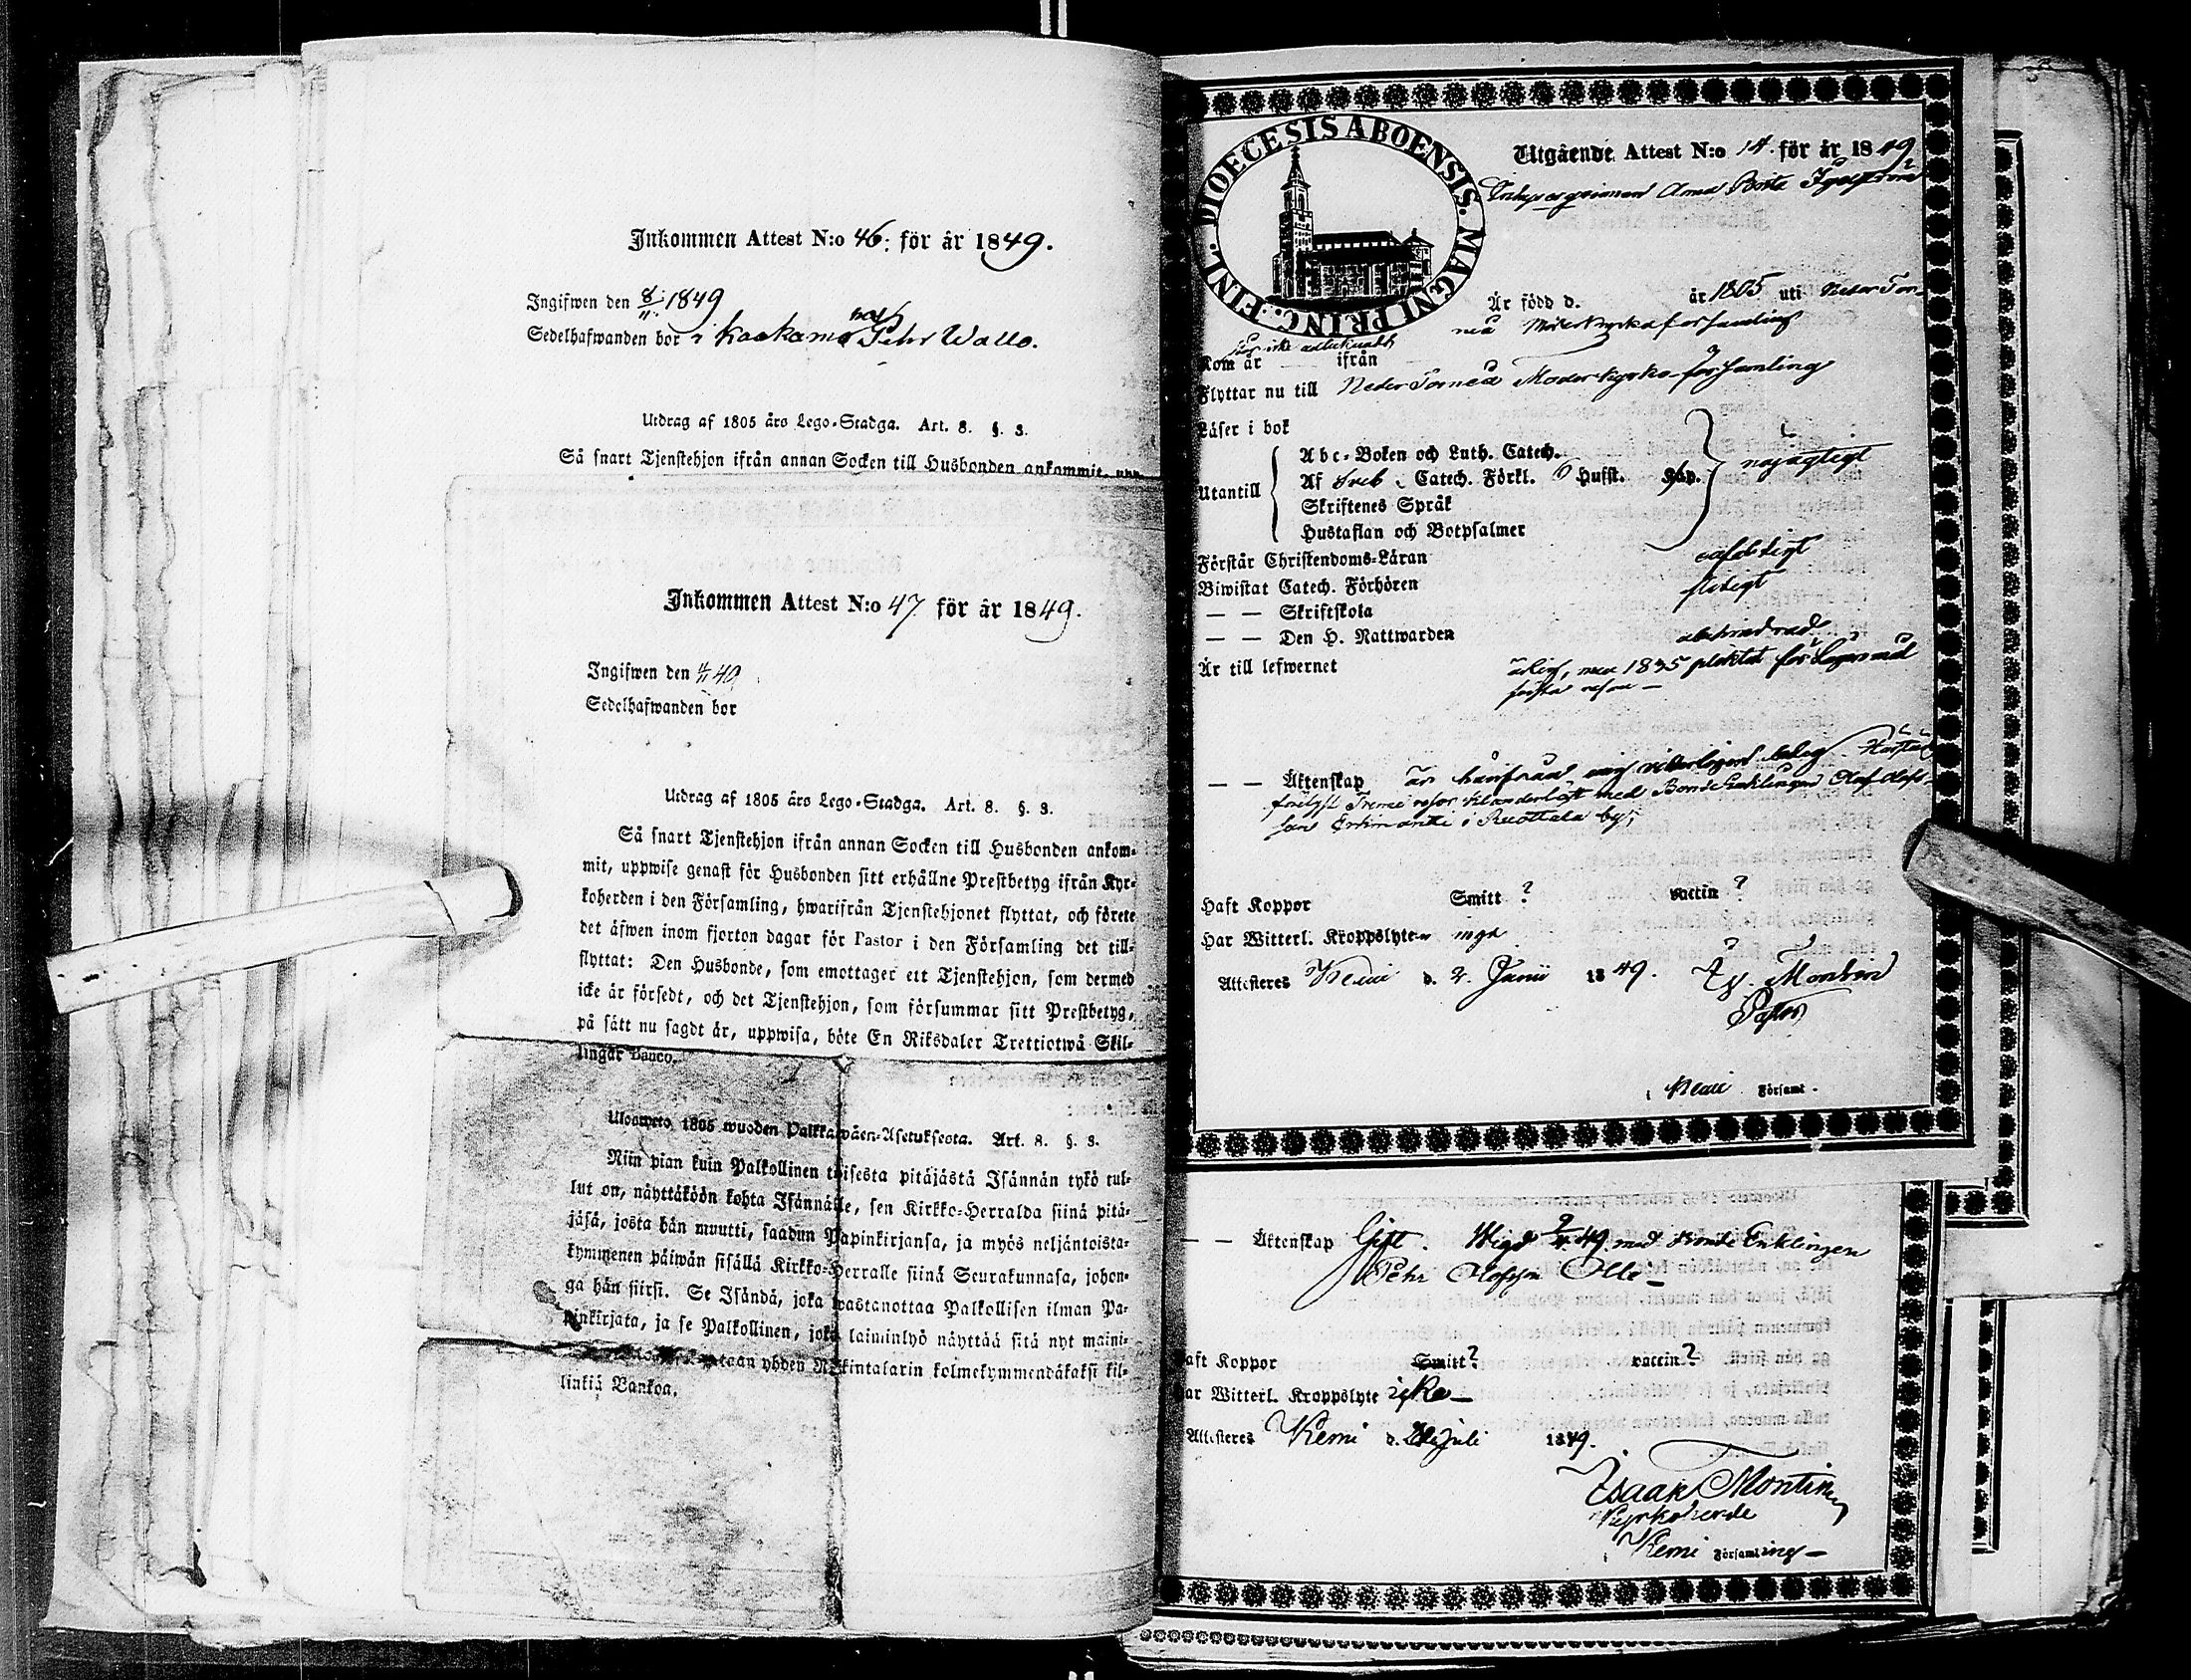 Inkommen Attest N:o 46: för år 1849.
Ingifwen den 8/11 1849
Sedelhafwanden bor i Kaakamo hos Pehr Wallo.
Utdrag af 1805 års Lego-Stadga. Art. 8. §. 3.
Så snart Tjenstehjon ifrån annan Socken till Husbonden ankommit, upp-
Inkommen Attest N:o 47 för år 1849.
Ingifwen den 11/11 49
Sedelhafwanden bor
Utdrag af 1805 års Lego-Stadga. Art. 8. §. 3.
Så snart Tjenstehjon ifrån annan Socken till Husbonden ankom-
mit, uppwise genast för Husbonden sitt erhållne Prestbetyg ifrån Kyr-
koherden i den Församling, hwarifrån Tjenstehjonet flyttat, och förete
det äfwen inom fjorton dagar för Pastor i den Församling det till-
flyttat: Den Husbonde, som emottager ett Tjenstehjon, som dermed
icke är försedt, och det Tjenstehjon, som försummar sitt Prestbetyg,
på sätt nu sagdt är, uppwisa, böte En Riksdaler Trettiotwå Skil-
lingar Banco.
Uloswето 1805 wuoden Palkkawäen-Asetuksesta. Art. 8. §. 3.
Niin pian kuin Palkollinen toisesta pitäjästä Isännän tykö tul-
lut on, näyttäköön kohta Isännälle, sen Kirkko-Herralda siinä pitä-
jäsä, josta hän muutti, saadun Papinkirjansa, ja myös neljäntoista-
kymmenen päiwän sisällä Kirkko-Herralle siinä Seurakunnasa, johon-
ga hän siirsi. Se Isändä, joka wastanottaa Palkollisen ilman Pa-
pinkirjata, ja se Palkollinen, joka laiminlyö näyttää sitä nyt maini-
taan yhden Riikintalarin kolmekymmendäkaksi kil-
linkiä Bankoa.
DIOECESIS ABOENSIS. MAGNI PRINC. FINL.
Utgående Attest N:o 14. för år 1849
Anna Brita
Är född d. år 1805 uti Neder Tor-
neå Moderkyrko församling
Kom år ifrån
Flyttar nu till Neder Torneå Moderkyrko-församling
Läser i bok
Utantill
Abc-Boken och Luth. Catech.
Af Sveb. Catech. Förkl. 6 Hufst. Kap.
nöjagtigt
Skriftenes Språk
Hustaflan och Botpsalmer
Förstår Christendoms-Läran
Biwistat Catech. Förhören flitigt
— — Skriftskola
— — Den H. Nattwarden
Är till lefwernet ärlig, men 1835 pliktat för Lägersmål
första resan —
— — Äktenskap är härifrån
med Bonde Enklingen Olof Olofs-
son Erkinantti i Ruottala by;
Haft Koppor Smitt ? vaccin ?
Har Witterl. Kroppslyten inga
Attesteres Kemi d. 2. Junii 1849.
Pastor
i Kemi Församl.
— — Äktenskap Gift. Wigd 9/4 49. med Bonde Enklingen
Pehr Olofsson Olli —
Haft Koppor Smitt? vaccin?
Har Witterl. Kroppslyte icke —
Attesteres Kemi d. Juli 1849.
Isaak Montin
Kyrkoherde
i Kemi Församling —